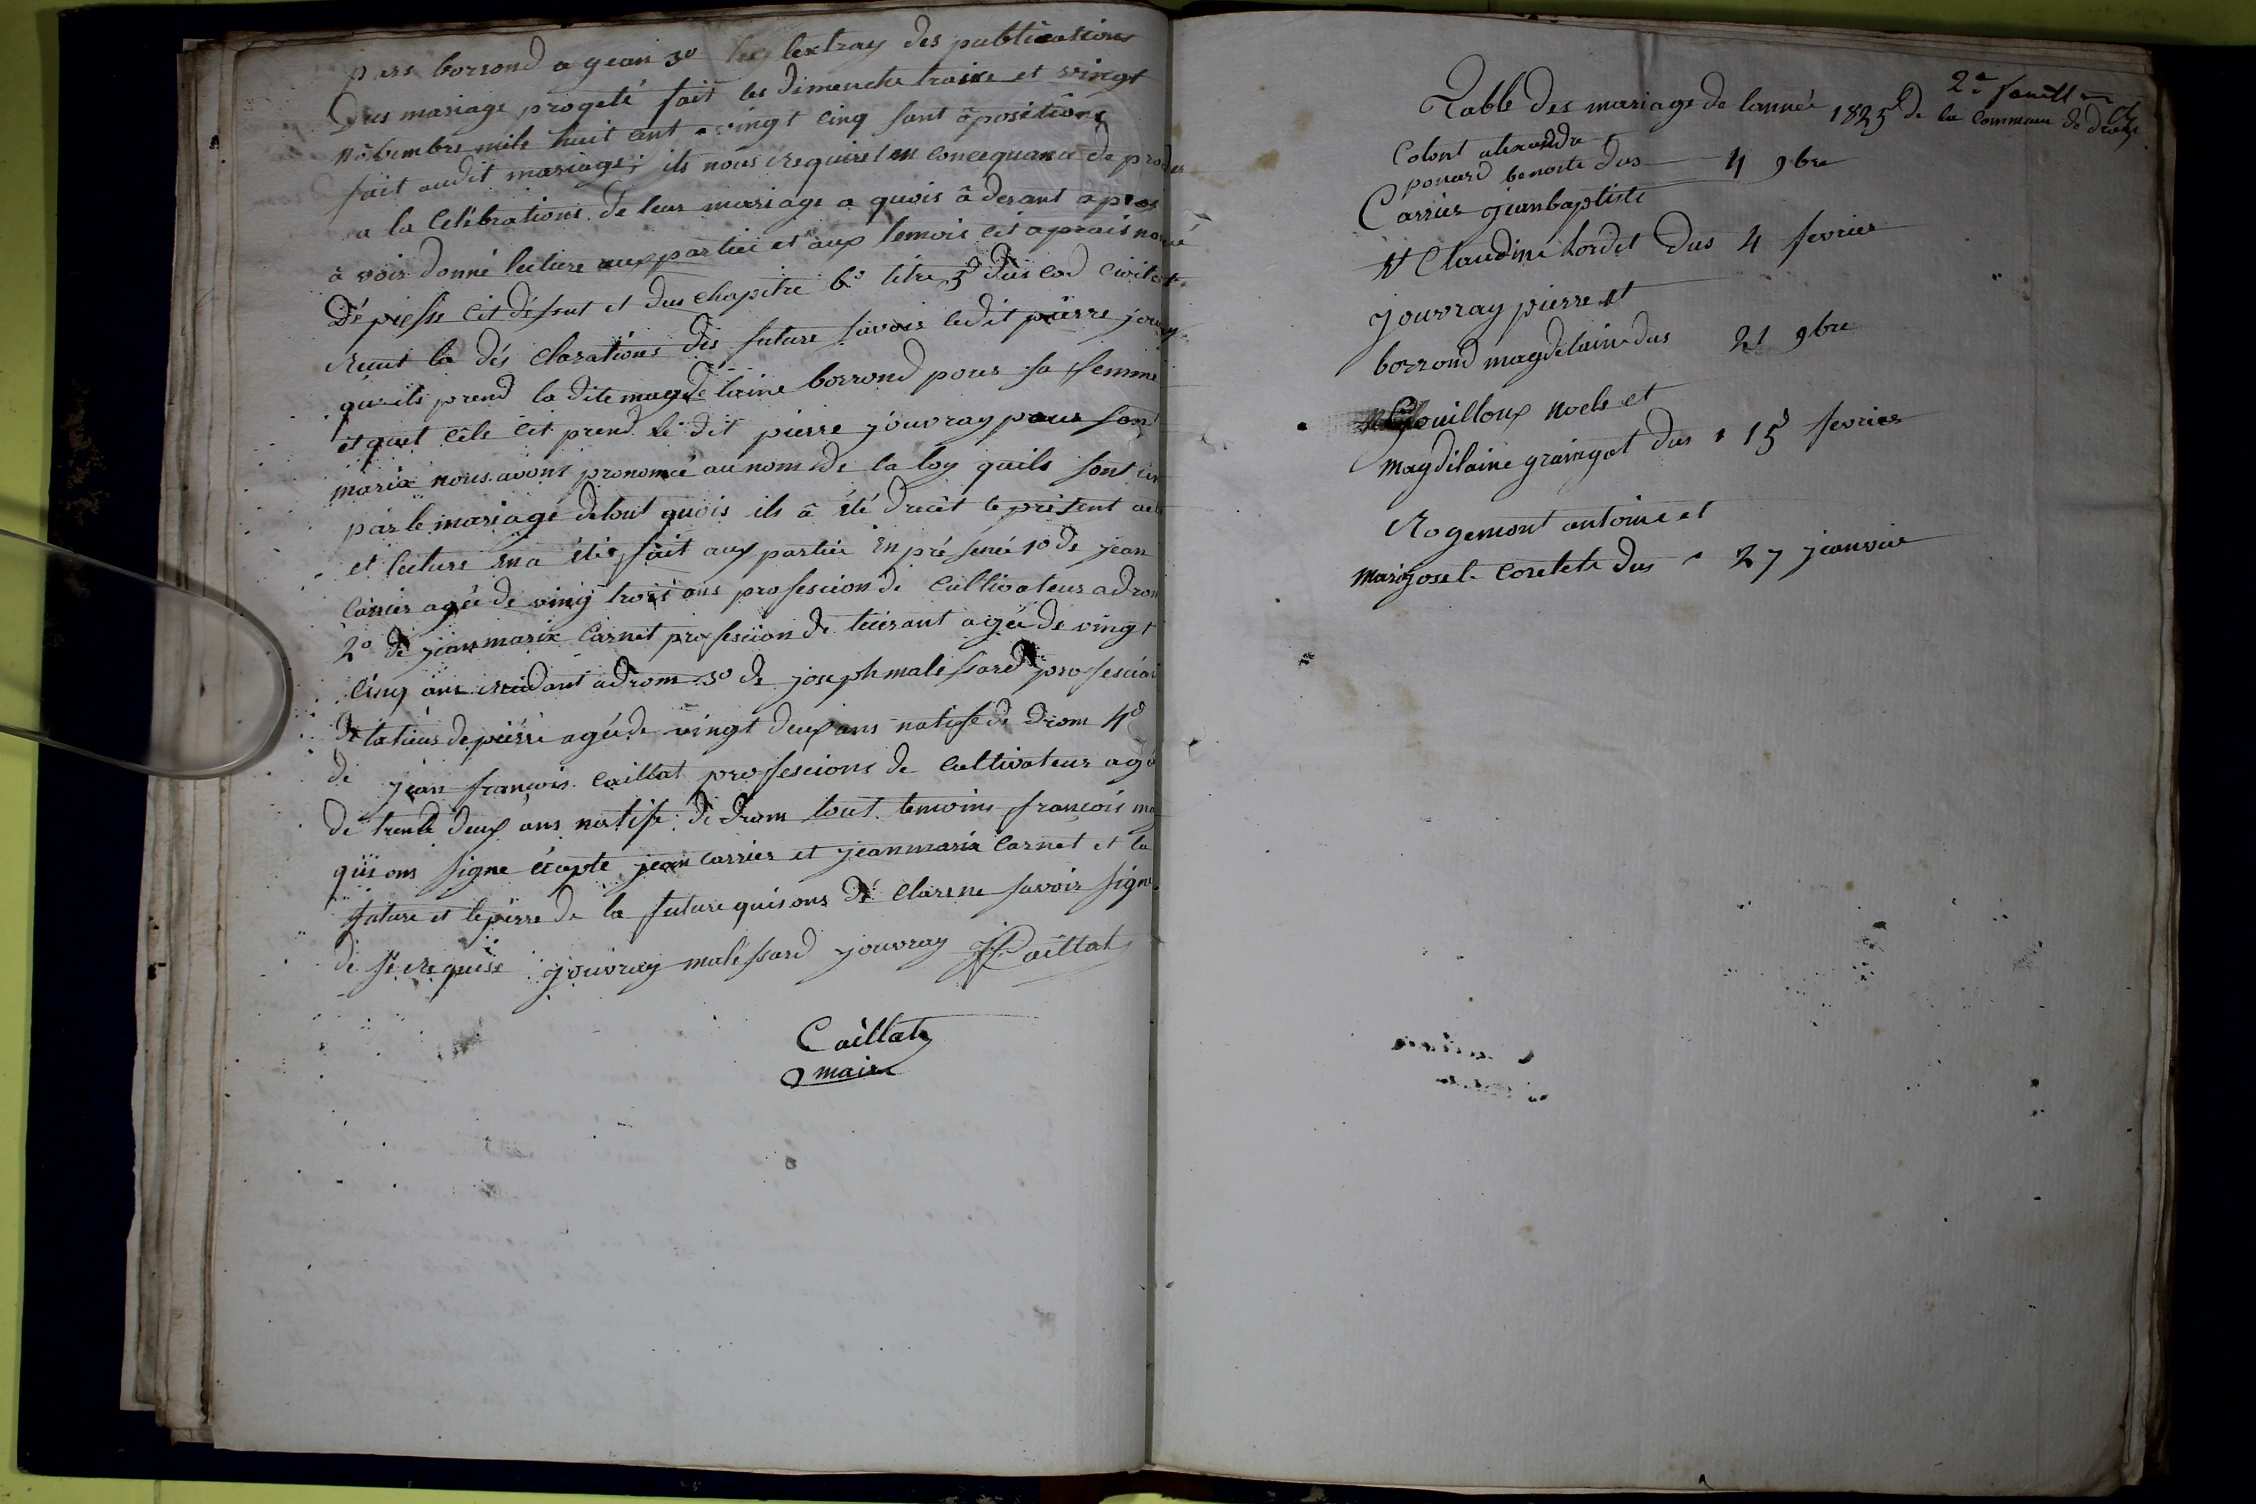 pers borrond a gean 3o les lextray des publications
Dus mariage progeté fait les dimenche traixe et vingt
nôbembre mile huit cent vingt cinq sant ôpositions
fait audit mariage; ils nous requiret en concequance de proder
a la Célébrations de leur mariage a quois â desant apres
â voir donné lecture aux partiei et aux temois cit aprais nomé
De piesse cit désut et dus chapitre 6o titre 5d dus cod civil et
recut la dés clarations des future savoir ledit pierre jouvray
quils prend la dite magdelaine borrond pour sa femme
et quel cele cit prend le dit pierre jouvray pour son
mariâ nous avons prononcé au nom de la loy quils sont unt
par le mariage detout quois ils â été drecêt le présent acte
et lecture en a étés fait aux partiei en présence 1o de jean
Carrier agée de vingt trois ans profescion de cultivateur a drom
2o de jean maria Carnet profescion de tiserant agée de vingt
cinq ans residant a drom 3o de joseph malessard profescion
de tatieur de pierre agée de vingt deux ans natife de drom 4o
de jean françois Caillat profescions de cultivateur agé
de trente deux ans natife de drom tout temoins françois
qui ons signe écapte jean carrier et jean maria carnet et la
future et le pérre de la future quis ons dé clare ne savoir signe
de se requise jouvray malessard jouvray JfCaillat
Caillat
maire
2e feuill
Table des mariage de lannée 1825 de la commune de drom
Colont alexandre
ponard benoite dus 4 9bre
Carrier jeanbaptiste
et Claudine hordet dus 4 fevrier
jouvray pierre et
borrond magdelaine dus 21 9bre
Gouilloux noels et
magdelaine graingot dus 15 fevrier
Rogemont antoine et
mari josel Coretete dus 27 jeanvier